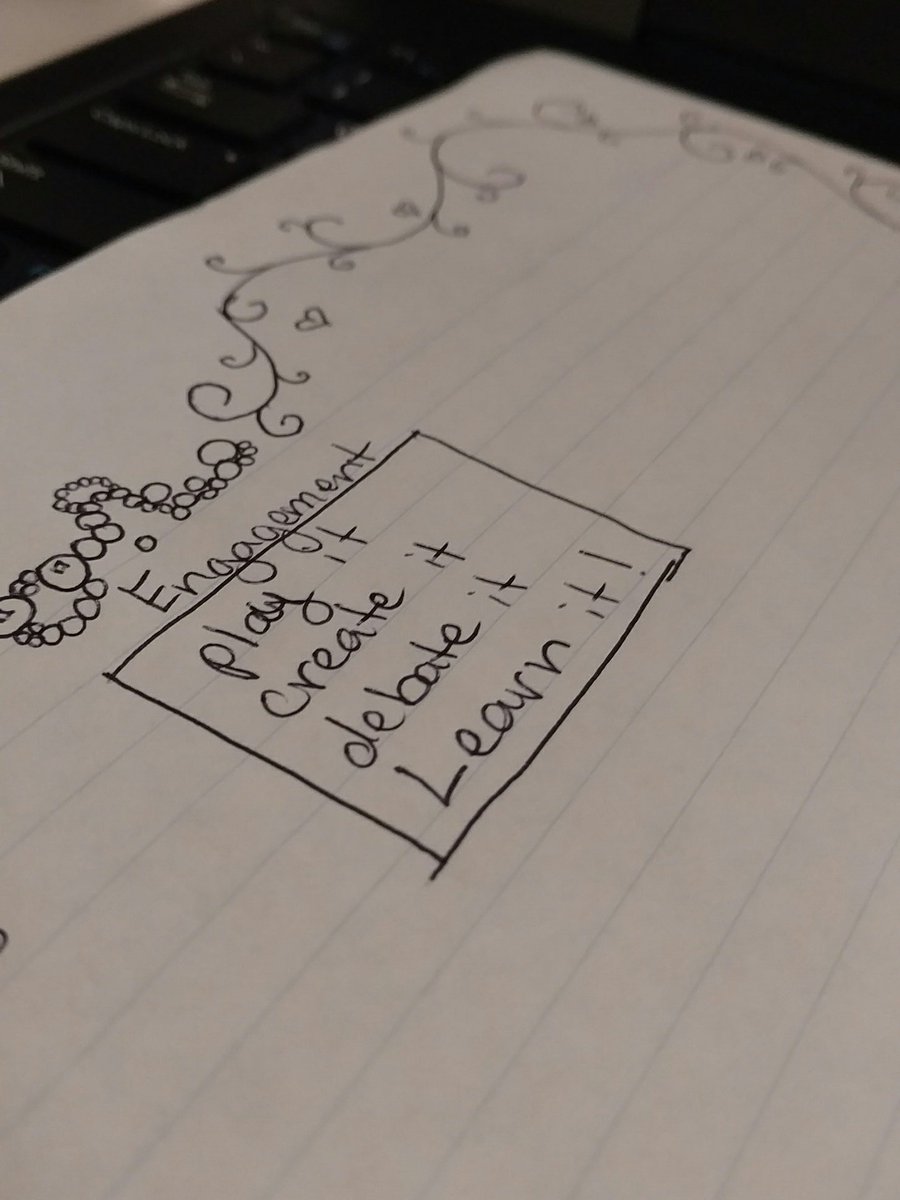 Engagement
play it
create it
debate it
Learn it!